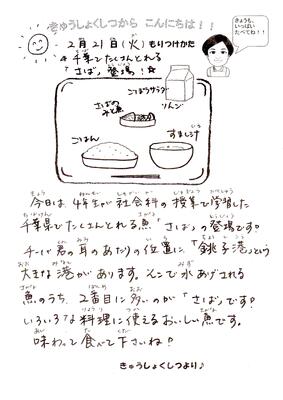 きゅうしょくしつから こんにちは!!
きょうも
いっぱい
たべてね!!
2月21日(火)もりつけかた
☆千葉でたくさんとれる
「さば」登場!☆
ごぼうサラダ
りんご
さばのみそ煮
ごはん
すまし汁
今日は、4年生が社会科の授業で学習した
千葉県でたくさんとれる魚「さば」の登場です。
チーバ君の耳のあたりの位置に「銚子港」という
大きな港があります。そこで水あげされる
魚のうち、2番目に多いのが「さば」です。
いろいろな料理に使えるおいしい魚です。
味わって食べて下さいね。
きゅうしょくしつより♪